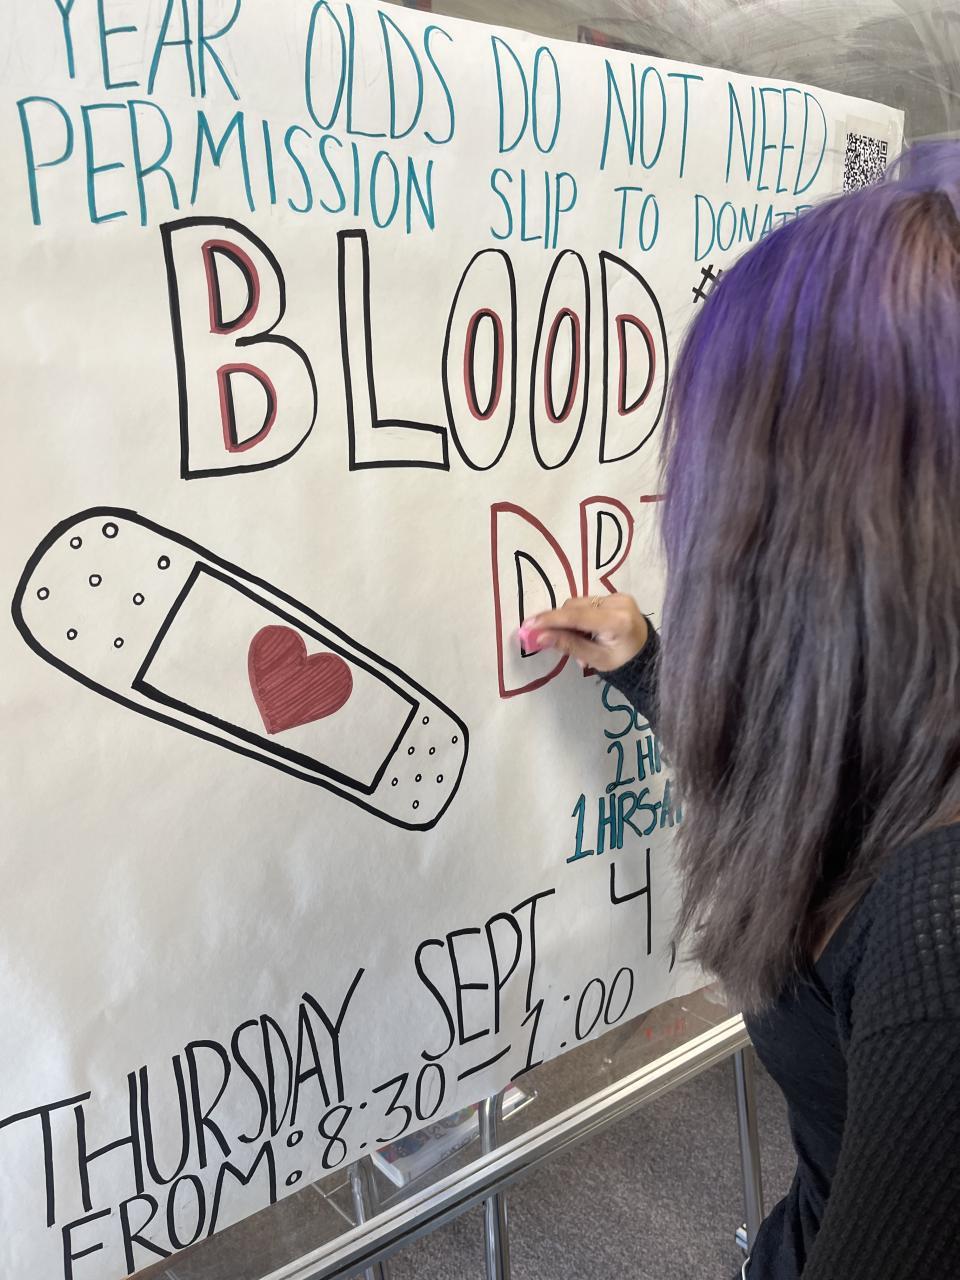 YEAR OLDS DO NOT NEED
PERMISSION SLIP TO DONATE
#
BLOOD
2 HR
1 HRS
THURSDAY SEPT 4,
FROM: 8:30-1:00